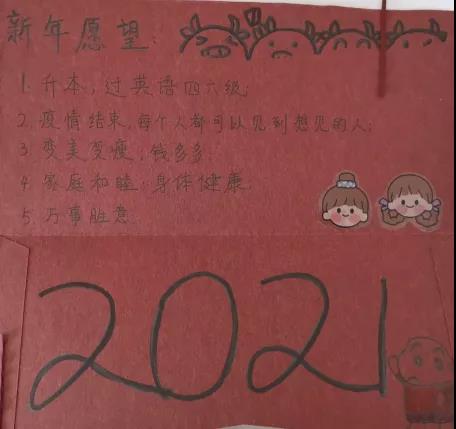 新年愿望:
1. 升本,过英语四六级;
2. 疫情结束,每个人都可以见到想见的人;
3. 变美变瘦,钱多多;
4. 家庭和睦,身体健康;
5. 万事胜意.
2021